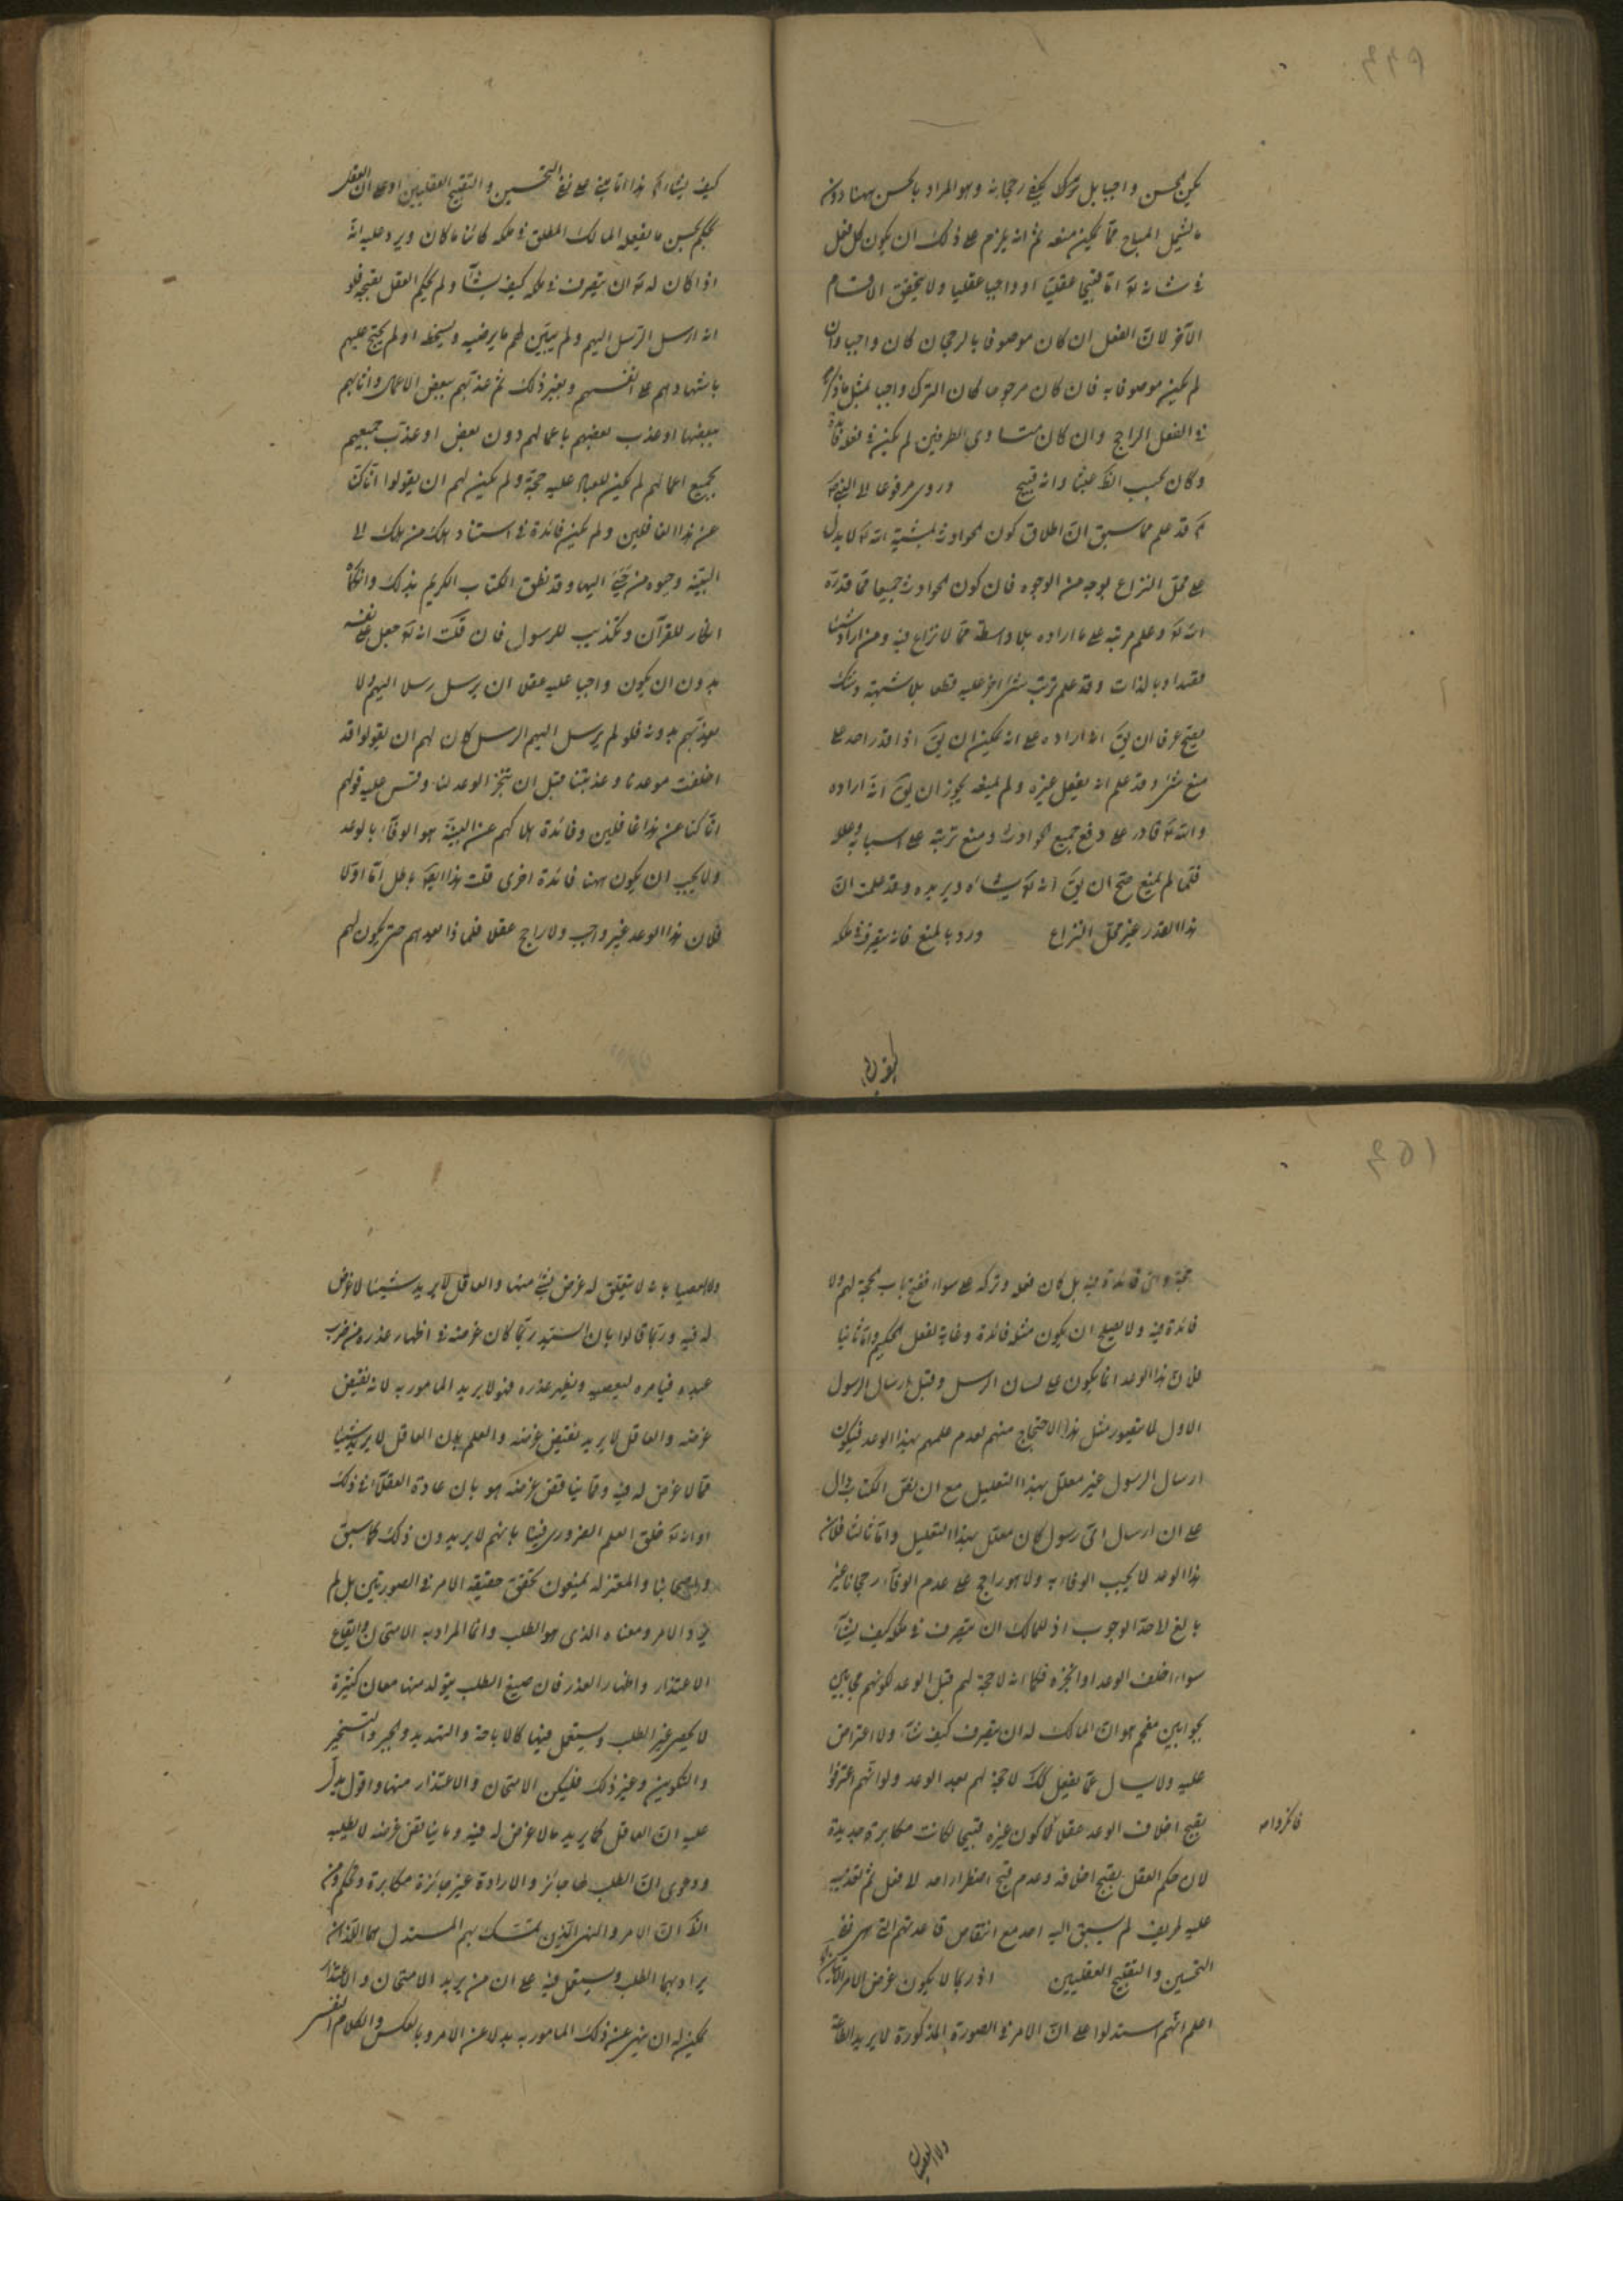 يكن الحسن واجبا بل تركه يكفي رجحانه وهو المراد بالحسن ههنا دون
ما يشمل المباح مما يمكن منعه ثم انه يلزم على ذلك ان يكون كل فعل
في شانه تع اما قبيحا عقليا او واجبا عقليا ولا يتحقق الاقسام
الاخر لان الفعل ان كان موصوفا بالرجحان كان واجبا وان
لم يكن موصوفا به فان كان مرجوحا كان الترك واجبا لمثل ما ذكر
في الفعل الراجح وان كان متساوي الطرفين لم يكن في فعله فائدة
وكان بحسب عبثا وانه قبيح وروي مرفوعا الى النبي
قد علم مما سبق ان اطلاق كون الحوادث بمشية الله تع لا يدل
على محل النزاع بوجه من الوجوه فان كون الحوادث جميعا مما قدره
الله تع وعلم مرتبه على ما اراده بلا واسطة مما لا نزاع فيه ومن اراد شيئا
قصدا وبالذات وقد علم ترتب شر اخر عليه قطعا بلا شبهة وشك
يصح عرفا ان يق انه اراده على انه يمكن ان يق اذا قدر احد على
منع شر وقد علم انه يفعل غيره ولم يمنعه يجوز ان يق انه اراده
والله تع قادر على دفع جميع الحوادث ومنع ترتبه على اسبابه وعلله
فلما لم يمنع صح ان يق انه تع يشاءه ويريده وقد علمت ان
هذا القدر غير محل النزاع ورد بالمنع فانه يتصرف في ملكه
كيف يشاء
كيف يشاء هذا انما يبتني على نفي التحسين والتقبيح العقليين او على ان العقل
يحكم بحسن ما يفعله المالك المطلق في ملكه كائنا ما كان ويرد عليه انه
اذا كان له تع ان يتصرف في ملكه كيف يشآء ولم يحكم العقل بقبحه فلو
انه ارسل الرسل اليهم ولم يبين لهم ما يرضيه ويسخطه او لم يحتج عليهم
باشهادهم على انفسهم وبغير ذلك ثم عذبهم ببعض الاعمال واثابهم
ببعضها او عذب بعضهم باعمالهم دون بعض او عذب جميعهم
بجميع اعمالهم لم يكن للعباد عليه حجة ولم يكن لهم ان يقولوا انا كنا
عن هذا الغافلين ولم يكن فائدة في استناد هلاك من هلك الى
البينة وحيوة من حيي اليها وقد نطق الكتاب الكريم بذلك وانكاره
انكار للقرآن وتكذيب للرسول فان قلت انه تع جعل على نفسه
بدون ان يكون واجبا عليه عقلا ان يرسل رسلا اليهم ولا
يعذبهم بدونه فلو لم يرسل اليهم الرسل كان لهم ان يقولوا قد
اخلفت موعدنا وعذبتنا قبل ان تنجز الوعد لنا وقس عليه قولهم
انا كنا عن هذا غافلين وفائدة هلاكهم عن البينة هو الوفآء بالوعد
ولا يجب ان يكون ههنا فائدة اخرى قلت هذا ايضا باطل اما اولا
فلان هذا الوعد غير واجب ولا راجح عقلا فلماذا بعدهم حتى يكون لهم
حجة واي فائدة فيه بل كان فعله وتركه على سواء ففتح باب الحجة لهم ولا
فائدة فيه ولا يصلح ان يكون مثله فائدة وغاية لفعل الحكيم واما ثانيا
فلان هذا الوعد انما يكون على لسان الرسل وقبل ارسال الرسول
الاول لا يتصور مثل هذا الاحتجاج منهم لعدم علمهم بهذا الوعد فيكون
ارسال الرسول غير معلل بهذا التعليل مع ان نص الكتاب دال
على ان ارسال اي رسول كان معلل بهذا التعليل واما ثالثا فلان
هذا الوعد لا يجب الوفاء به ولا هو راجح على عدم الوفآء رجحانا غير
بالغ لاحد الوجوب اذ للمالك ان يتصرف في ملكه كيف يشآء
سواء اخلف الوعد او انجزه فكما انه لا حجة لهم قبل الوعد لكونهم مجابين
بجوابين مفحم هو ان المالك له ان يتصرف كيف شآء ولا اعتراض
عليه ولا يسال عما يفعل كك لا حجة لهم بعد الوعد ولو انهم اعترفوا
بقبح اخلاف الوعد عقلا كون غيره قبيحا لكانت مكابرة جديدة
لان حكم العقل بقبح اخلافه وعدم قبح اضطرار احد الى فعل ثم تعذيبه
عليه طريف لم يسبق اليه احد مع انتقاض قاعدتهم التي هي نفي
التحسين والتقبيح العقليين اذ ربما لا يكون غرض الامر
اعلم انهم استدلوا على ان الامر في الصورة المذكورة لا يريد الطاعة
ولا العصيان
ولا العصيان لا يتعلق له غرض بشئ منها والعاقل لا يريد شيئا لا غرض
له فيه وربما قالوا بان السيد ربما كان غرضه في اظهار عذره من ضرب
عبده فيامره ليعصيه ويظهر عذره فهو لا يريد المامور به لانه نقيض
غرضه والعاقل لا يريد نقيض غرضه والعلم بان العاقل لا يريد شيئا
مما لا غرض له فيه ومما يناقض غرضه هو بان عادة العقلآء في ذلك
او انه تع خلق العلم الضروري فينا بانهم لا يريدون ذلك كما سبق
واصحابنا والمعتزلة يمنعون تحقق حقيقة الامر في الصورتين بل لم
الامر ومعناه الذي هو الطلب وانما المراد به الامتحان وايقاع
الاعتذار واظهار العذر فان صيغ الطلب يتولد منها معان كثيرة
لا يحصر غير الطلب ويستعمل فيها كالاباحة والتهديد والتسخير
والتكوين وغير ذلك فليكن الامتحان والاعتذار منها واقول يدل
عليه ان العاقل كما يريد ما لا غرض له فيه وما يناقض غرضه لا يطلبه
ودعوى ان الطلب ههنا جائز والارادة غير جائزة مكابرة وتحكم
ان الامر والنهي الذين يتمسك بهم المستدل هما اللذان
يراد بهما الطلب ويستعمل فيه على ان من يريد الامتحان والاعتذار
يمكن له ان ينهى عن ذلك المامور به بدلا عن الامر وبالعكس والكلام النفسي